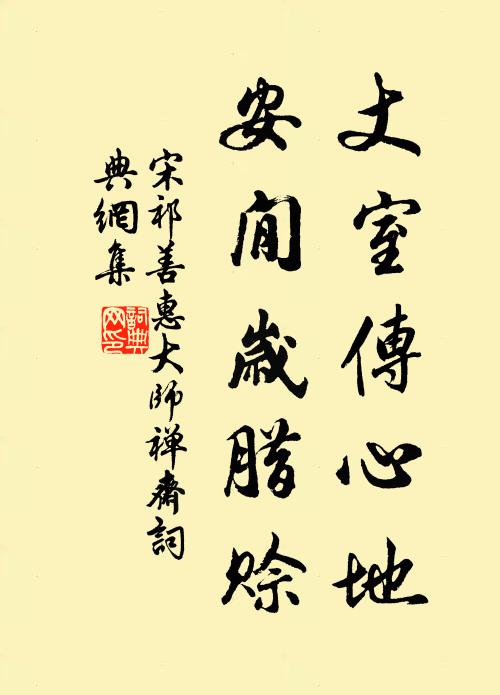 丈室傳心地
安閒歲腊賒
宋祁善惠大師禅齋詞
典網集
詞典網印